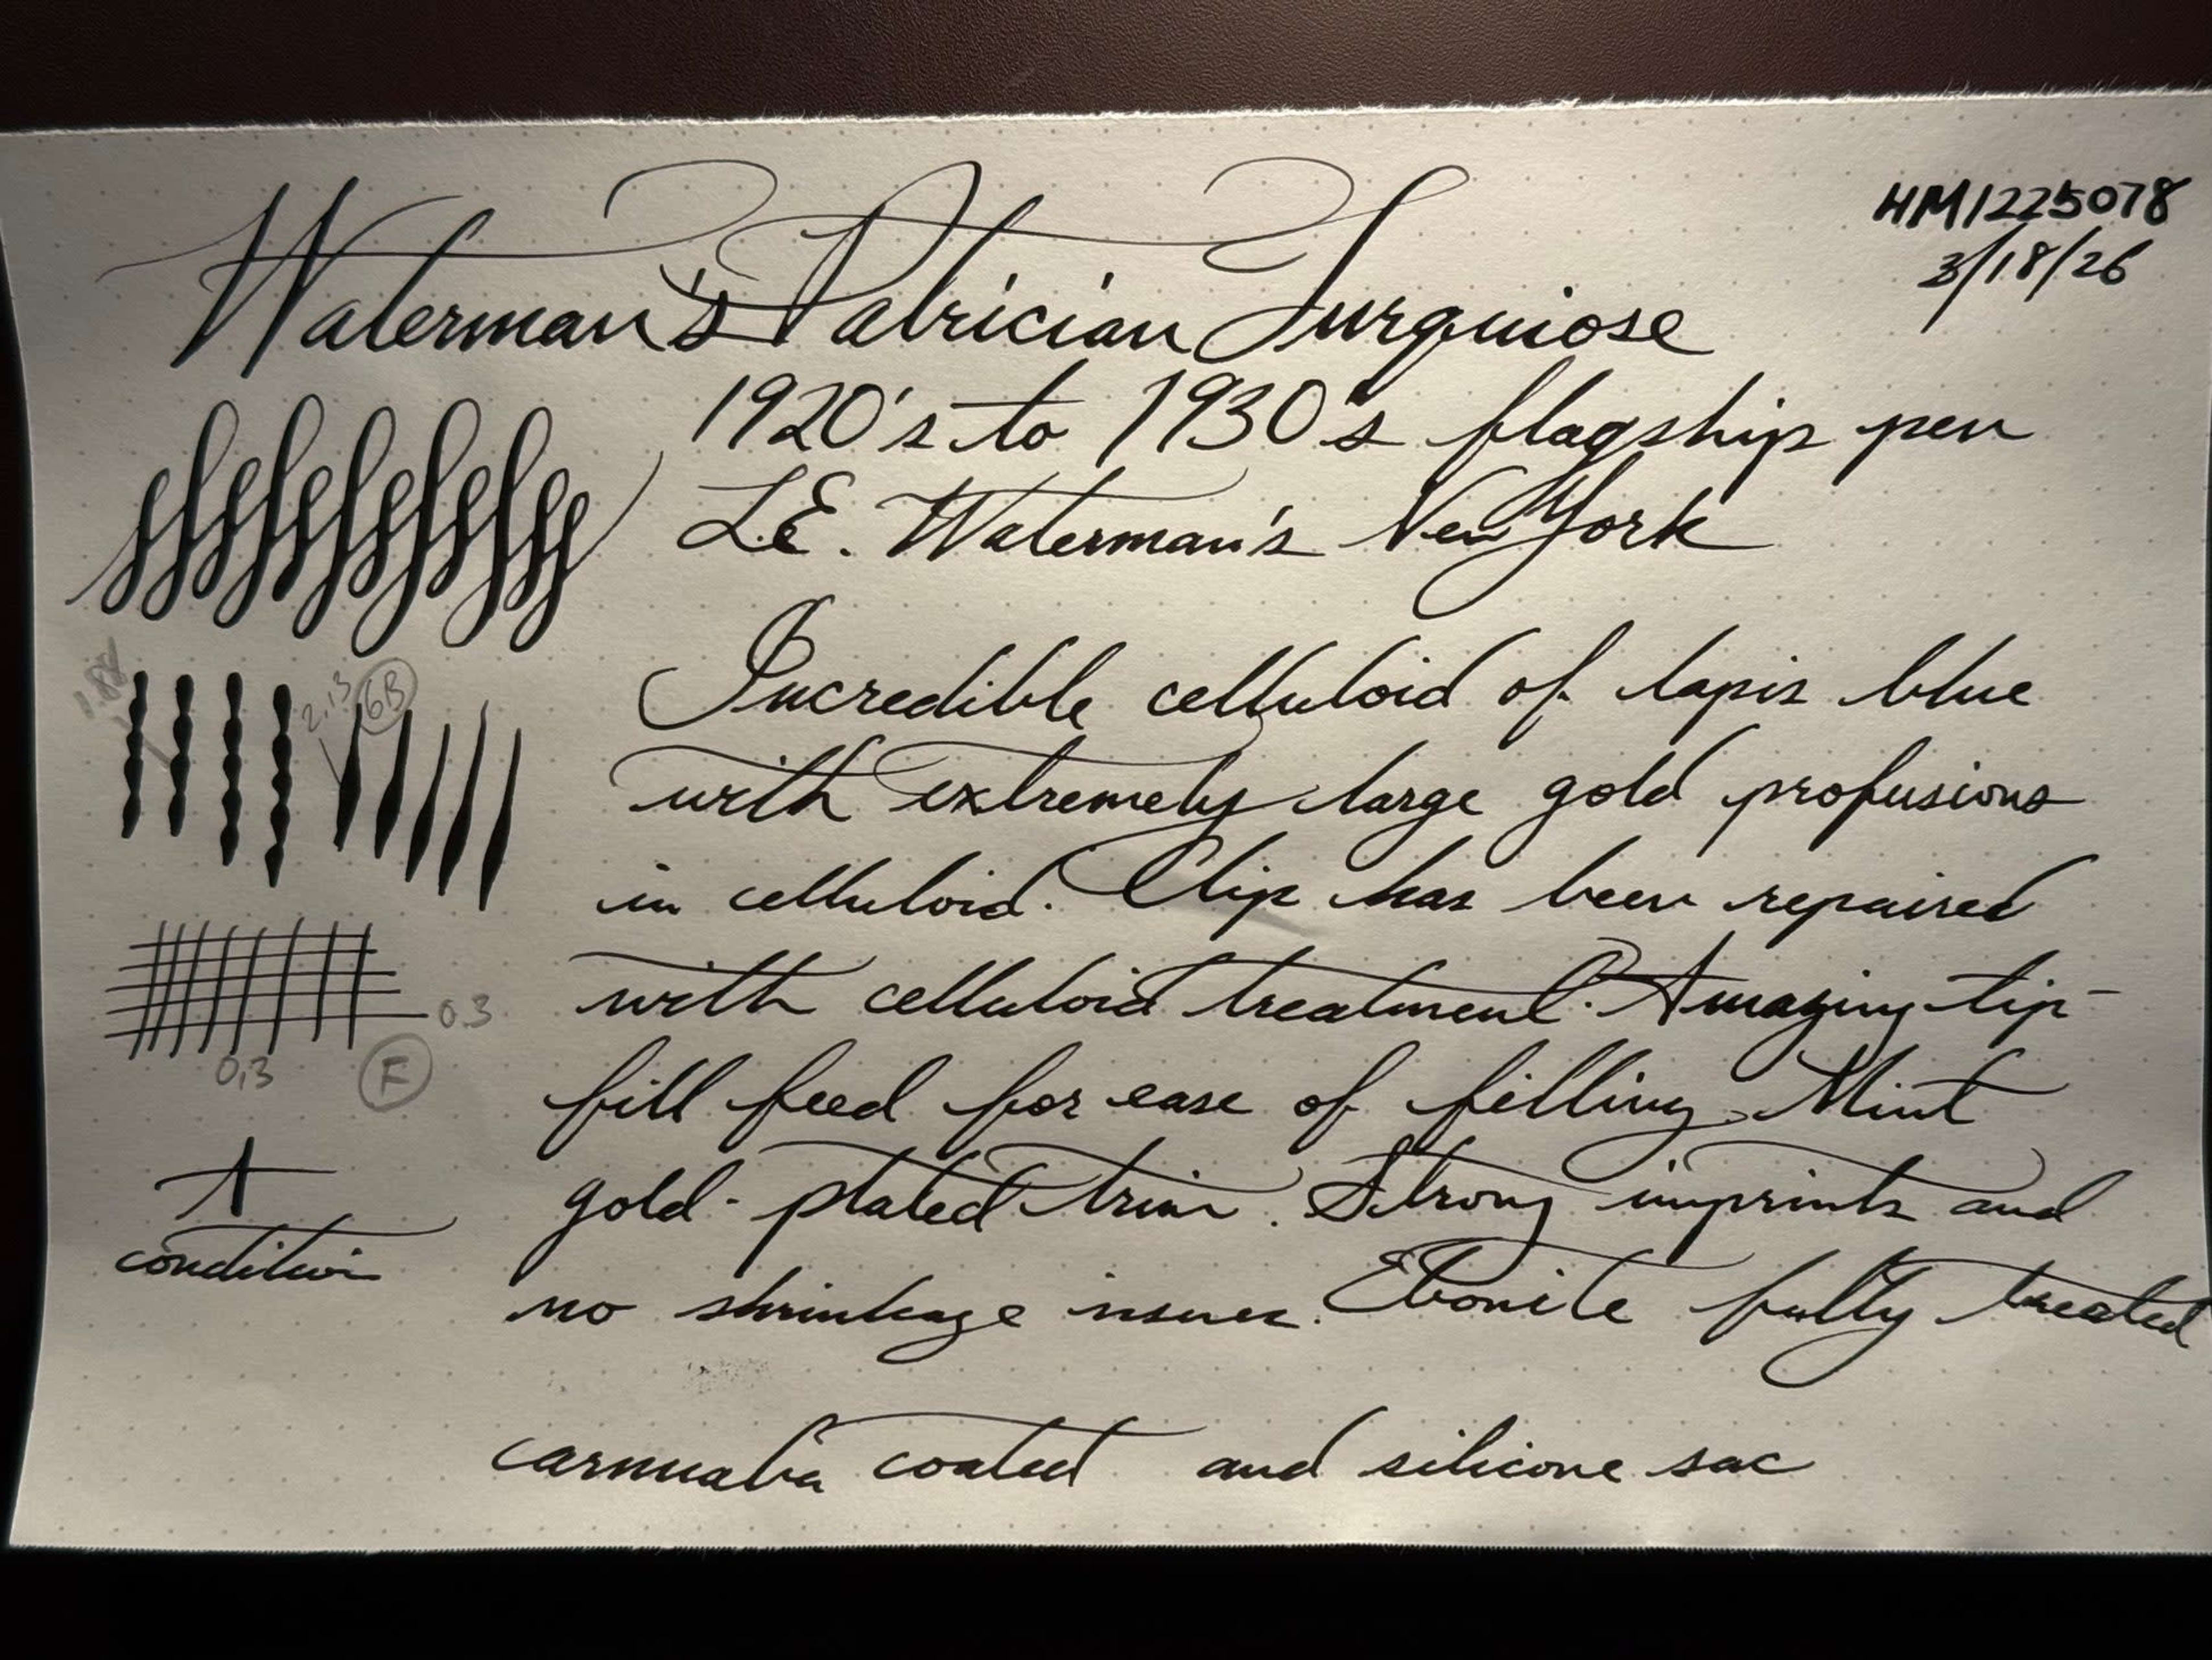 HM1225078
3/18/26
Waterman's Patrician Turquiose
1920's to 1930's flagship pen
L.E. Waterman's New York
Incredible celluloid of lapis blue
with extremely large gold profusions
in celluloid. Clip has been repaired
with celluloid treatment. Amazing tip-
fill feed for ease of filling. Mint
gold-plated trim. Strong imprints and
no shrinkage issues. Ebonite fully treated
carnuaba coated and silicone sac
1.88
2.13
6B
0.3
0.3
F
A
condition